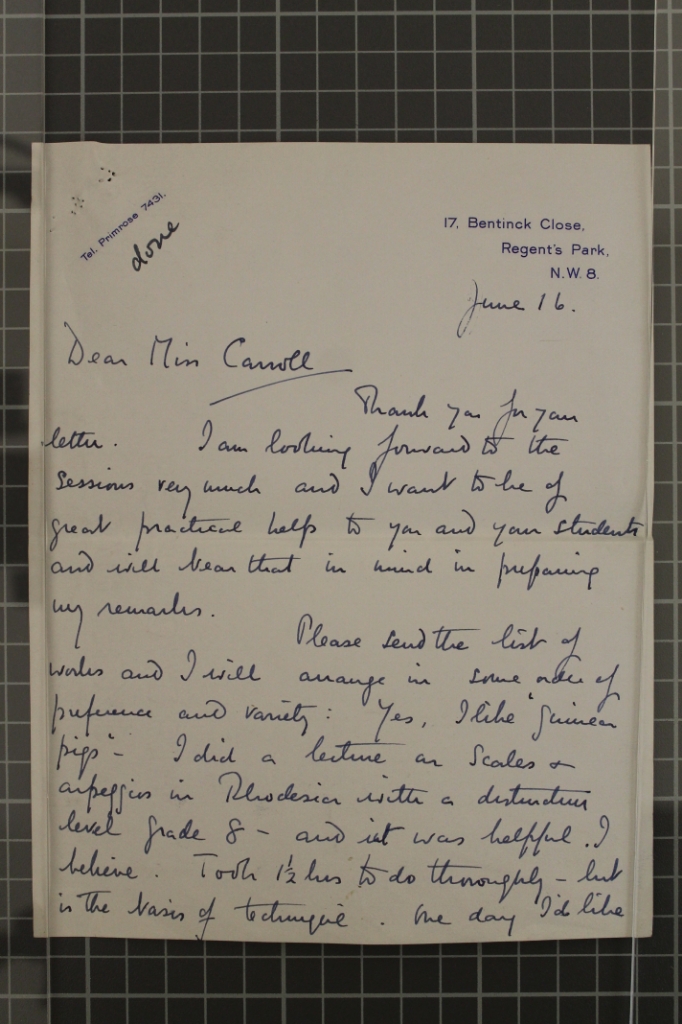 Tel. Primrose 7431.
done
17, Bentinck Close,
Regent's Park,
N.W. 8.
June 16.
Dear Miss Carroll
Thank you for your
letter. I am looking forward to the
sessions very much and I want to be of
great practical help to you and your students
and will bear that in mind in preparing
my remarks.
Please send the list of
works and I will arrange in some order of
preference and variety: Yes, I like "guinea
pigs" - I did a lecture on Scales &
arpeggios in Rhodesia with a distinction
level grade 8 - and it was helpful. I
believe. Took 1½ hrs to do thoroughly - but
is the basis of technique. One day I'd like